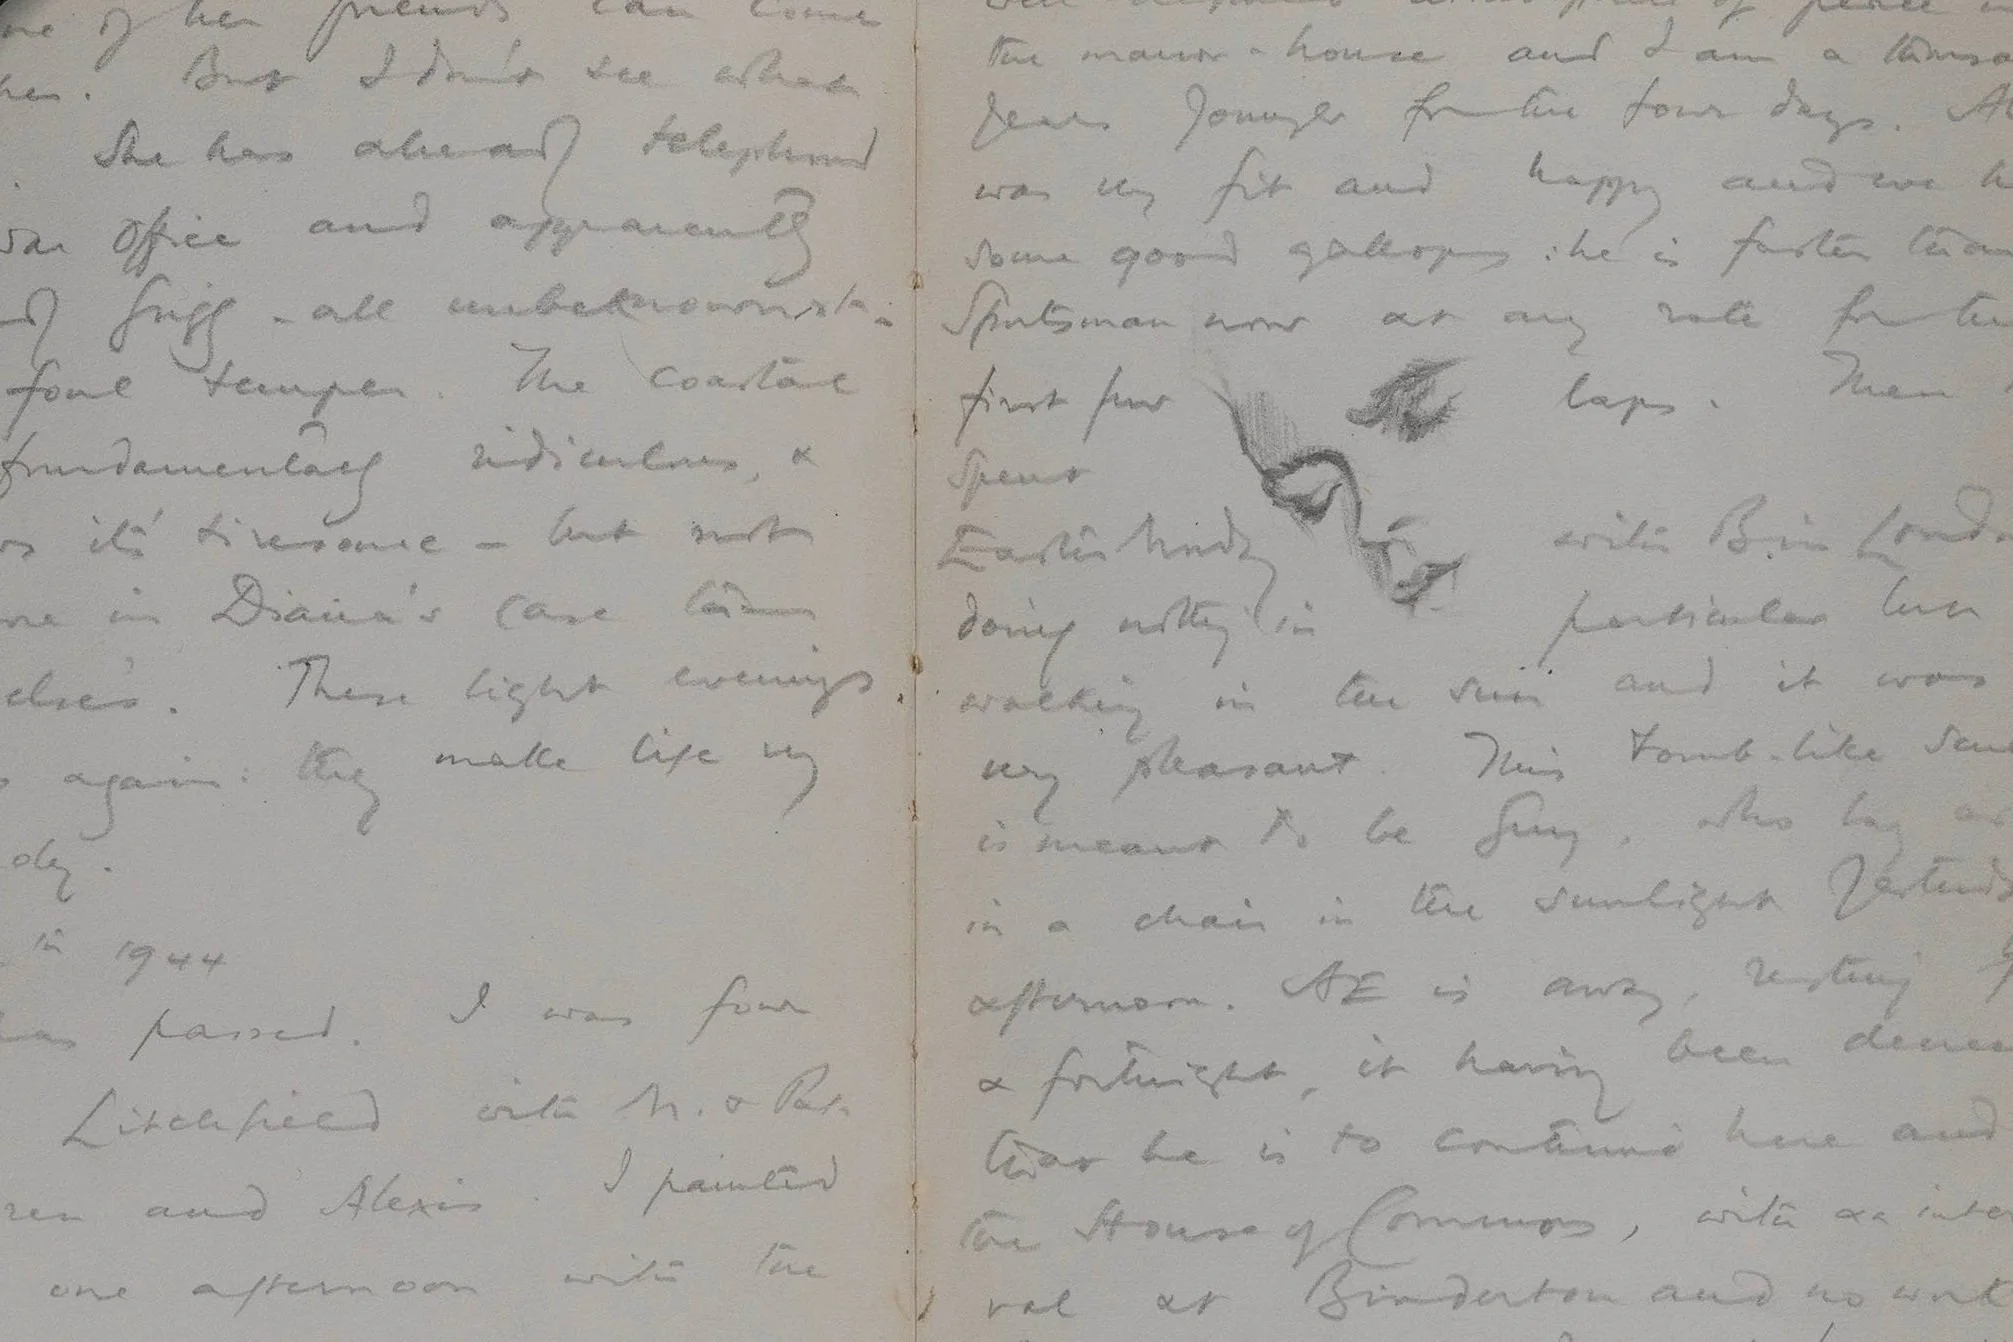 of her friends can come
her. But I don't see what
She has already telephoned
War Office and apparently
Grigg - all unbeknownst -
foul temper. The coastal
fundamentally ridiculous, &
it's tiresome - but not
in Diana's case than
else's. These light evenings
again: they make life very
in 1944
has passed. I was four
Litchfield with N. & Pat.
and Alexis. I painted
one afternoon with the
of peace in
the manor-house and I am a thousand
years younger for the four days.
was very fit and happy and we h
some good gallops: he is faster than
Sportsman now at any rate for the
first few laps. Then
spent
Easter Monday with B. in London
doing nothing in particular but
walking in the sun and it was
very pleasant. This tomb-like
is meant to be Guy, who lay
in a chair in the sunlight yesterday
afternoon. AE is away, resting
a fortnight, it having been
that he is to continue here and
the House of Commons, with an inter
val at Binderton and no work